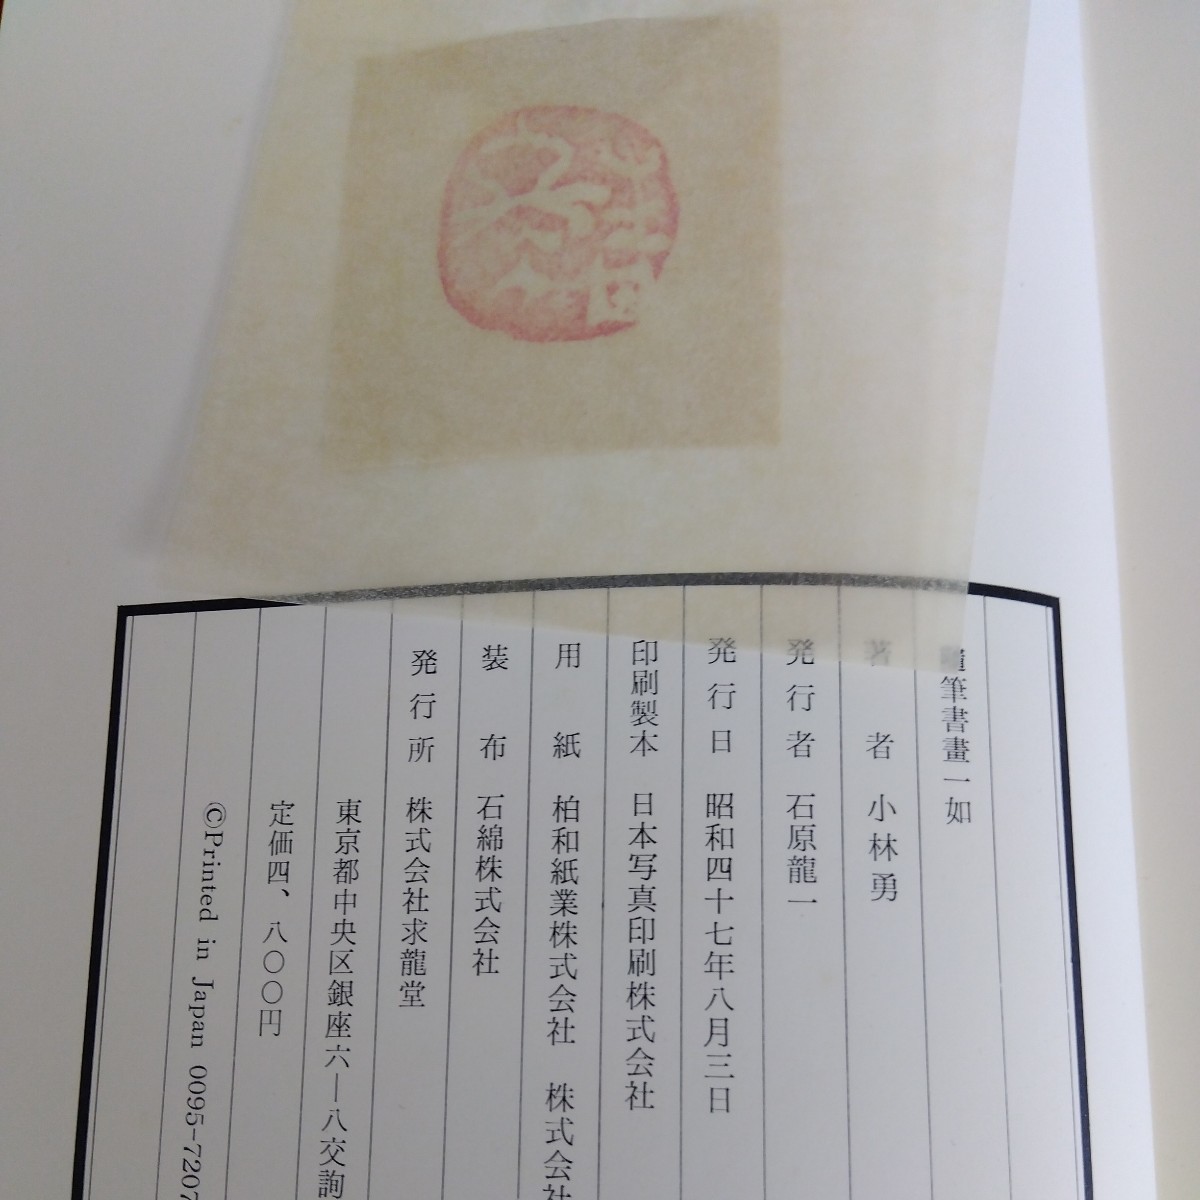 隨筆書畫一如
著者 小林勇
発行者 石原龍一
発行日 昭和四十七年八月三日
印刷製本 日本写真印刷株式会社
用紙 柏和紙業株式会社 株式会社
装布 石綿株式会社
発行所 株式会社求龍堂
東京都中央区銀座六—八交詢
定価四、八〇〇円
©Printed in Japan 0095-7207